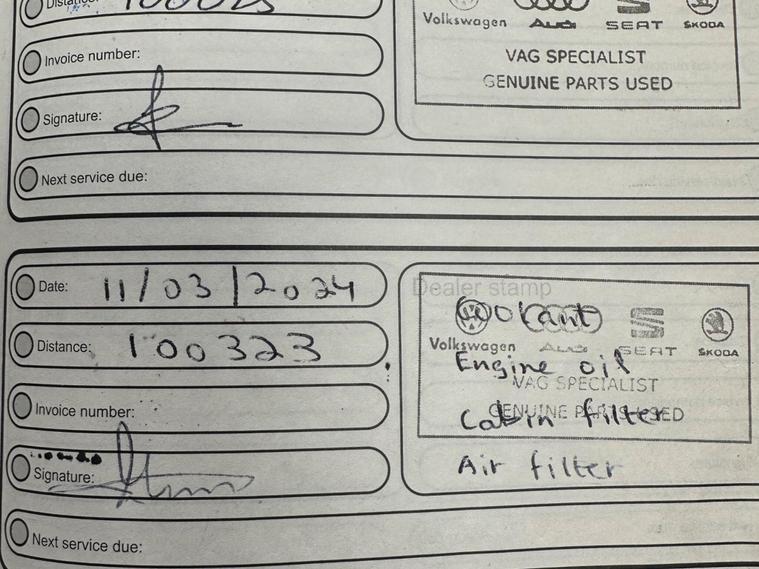 Volkswagen Audi SEAT ŠKODA
Invoice number:
VAG SPECIALIST
GENUINE PARTS USED
Signature:
Next service due:
Date: 11/03/2024
Dealer stamp
Coolant
Distance: 100323
Volkswagen Audi SEAT ŠKODA
Engine oil
VAG SPECIALIST
Invoice number:
GENUINE PARTS USED
Cabin filter
Signature:
Air filter
Next service due: